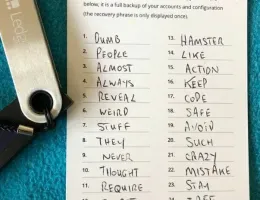 below, it is a full backup of your accounts and configuration
(the recovery phrase is only displayed once).
1. DUMB
2. PEOPLE
3. ALMOST
4. ALWAYS
5. REVEAL
6. WEIRD
7. STUFF
8. THEY
9. NEVER
10. THOUGHT
11. REQUIRE
13. HAMSTER
14. LIKE
15. ACTION
16. KEEP
17. CODE
18. SAFE
19. AVOID
20. SUCH
21. CRAZY
22. MISTAKE
23. STAY